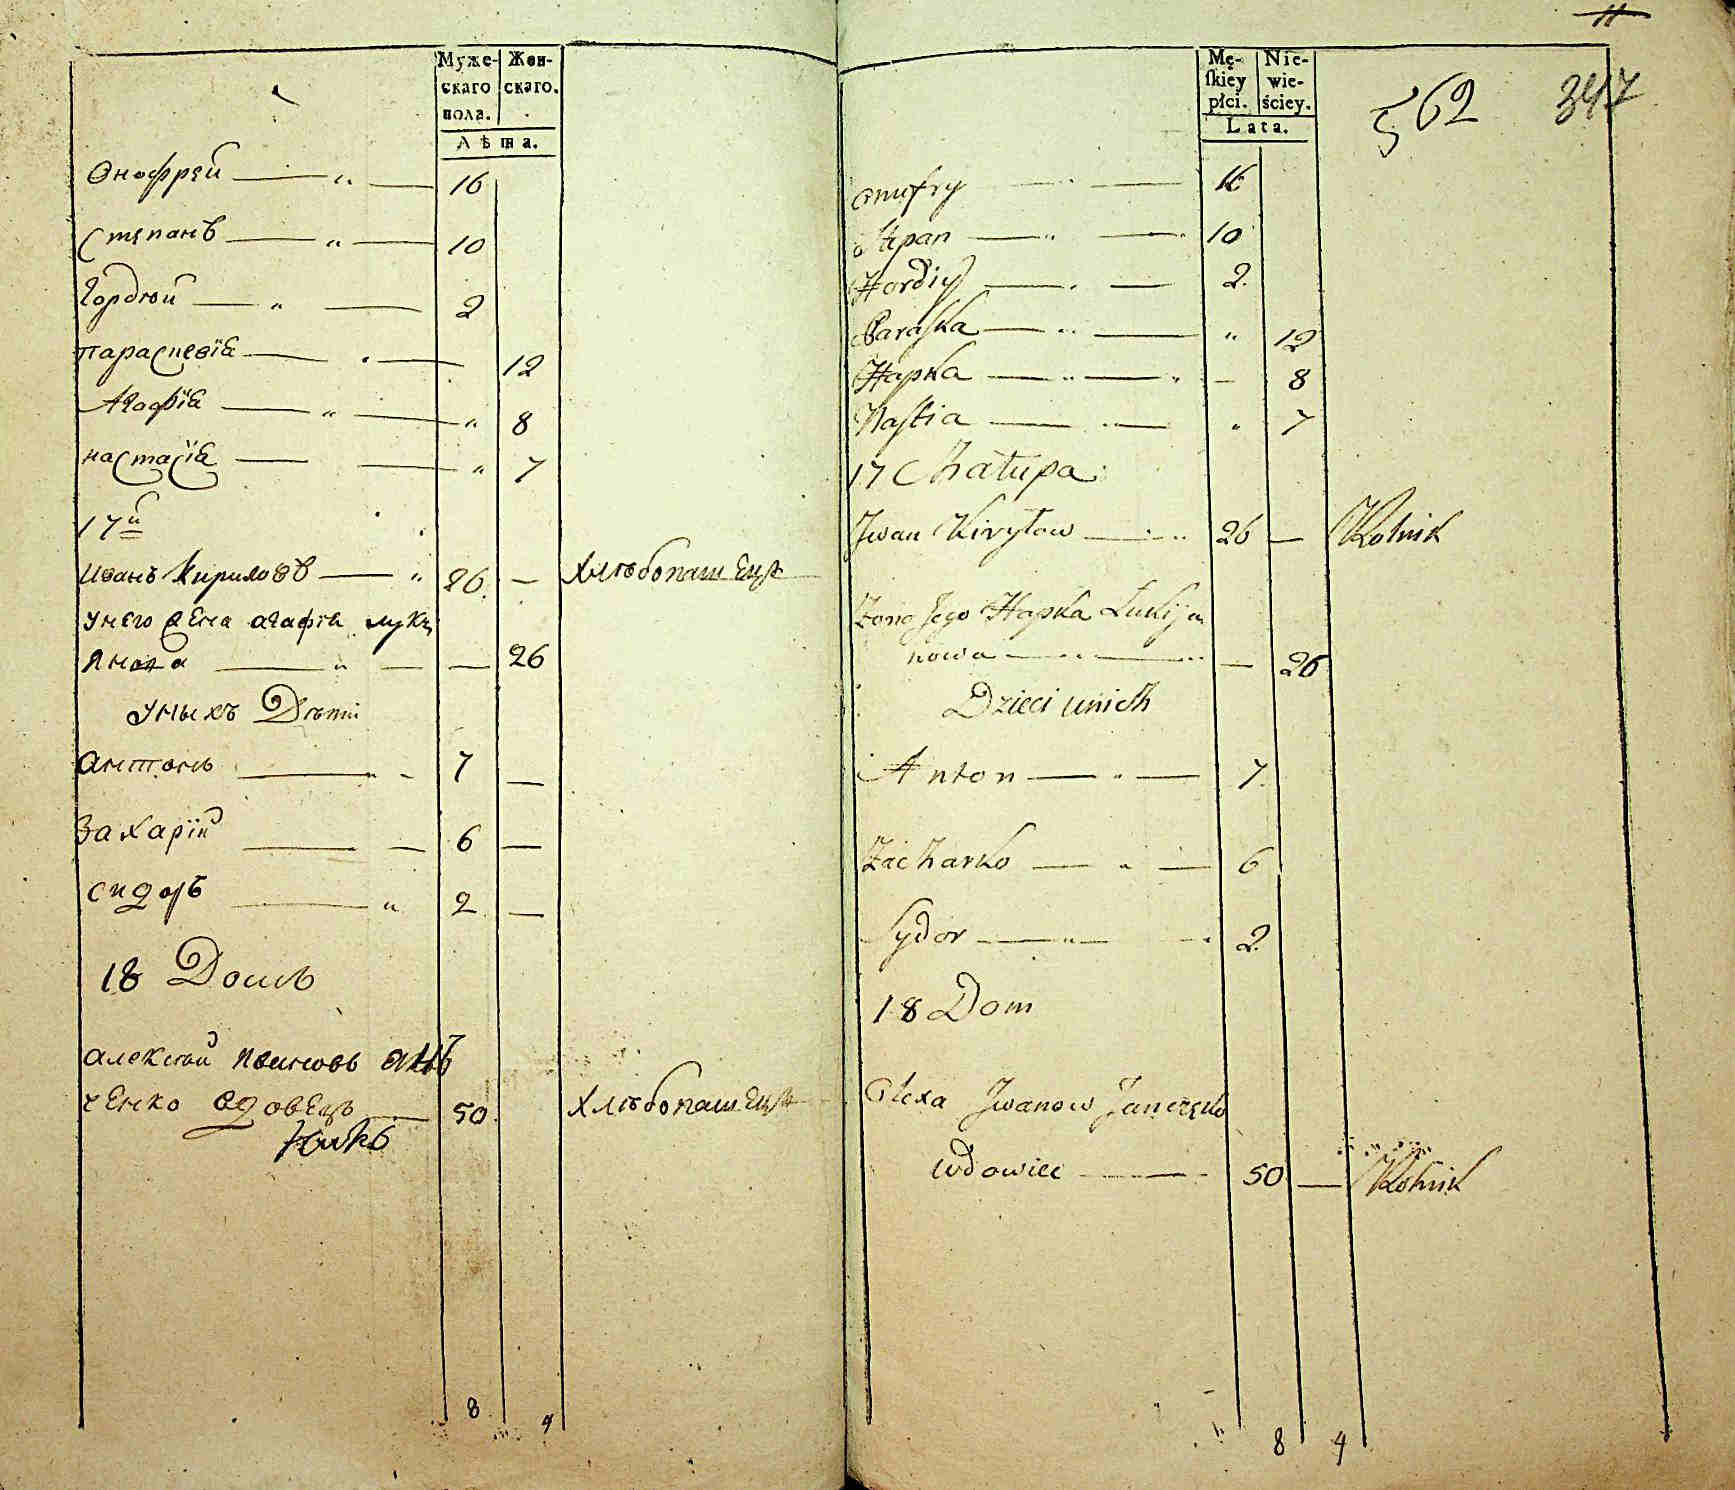 Муже-
скаго
пола.
Жен-
скаго.
Лѣта.
Онофрей — " — 16
Степанъ — " — 10
Гордѣй — " — 2
параскевіа — " — 12
Агафіа — " — " 8
настасіа — — " 7
17й
Иванъ Кириловъ — " 26 — Хлѣбопашецъ
унего жена агафіа луки
янова — " — — 26
Унихъ Дѣти
антонъ — " - 7 —
Захарій — — 6 —
сидоръ — " 2 —
18 Домъ
алексѣй ивановъ
ченко вдовецъ — 50 Хлѣбопашецъ
8 4
11
562 347
Mę-
skiey
płci.
Nie-
wie-
ściey.
Lata.
Onufry — " — 16
Stepan — " — 10
Hordiy — " — 2.
Paraska — " — " 12
Hapka — " — " — 8
Nastia — " — " 7
17 Chałupa
Jwan Kiryłow — " 26 — Rolnik
Zona Jego Hapka Lukija
nowa — " — " — 26
Dzieci unich
Anton — " — 7.
Zacharko — " — 6
Sydor — " — 2.
18 Dom
Olexa Jwanow Janczenko
wdowiec — 50 — Rolnik
8 4